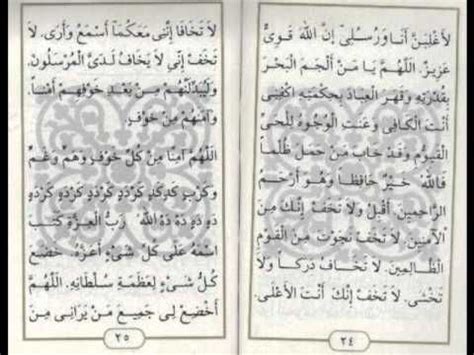 لأَغْلِبَنَّ أَنَا وَرُسُلِي إِنَّ اللهَ قَوِيٌّ
عَزِيزٌ. اَللَّهُمَّ يَا مَنْ أَلْجَمَ الْبَحْرَ
بِقُدْرَتِهِ وَقَهَرَ الْعِبَادَ بِحِكْمَتِهِ اِكْفِنِي
أَنْتَ الْكَافِي وَعَنَتِ الْوُجُوهُ لِلْحَيِّ
الْقَيُّومِ وَقَدْ خَابَ مَنْ حَمَلَ ظُلْمًا
فَاللهُ خَيْرٌ حَافِظًا وَهُوَ أَرْحَمُ
الرَّاحِمِينَ. أَقْبِلْ وَلاَ تَخَفْ إِنَّكَ مِنَ
الآمِنِينَ. لاَ تَخَفْ نَجَوْتَ مِنَ الْقَوْمِ
الظَّالِمِينَ. لاَ تَخَافُ دَرَكًا وَلاَ
تَخْشَى. لاَ تَخَفْ إِنَّكَ أَنْتَ الأَعْلَى.
٢٤
لاَ تَخَافَا إِنَّنِي مَعَكُمَا أَسْمَعُ وَأَرَى. لاَ
تَخَفْ إِنِّي لاَ يَخَافُ لَدَيَّ الْمُرْسَلُونَ.
وَلَيُبَدِّلَنَّهُمْ مِنْ بَعْدِ خَوْفِهِمْ أَمْنًا.
وَآمَنَهُمْ مِنْ خَوْفٍ.
اَللَّهُمَّ آمِنَّا مِنْ كُلِّ خَوْفٍ وَهَمٍّ وَغَمٍّ
وَكَرْبٍ كَدٍ كَدٍ كَرْدَدٍ كَرْدَدٍ كَرْدَهٍ
دَهٍ دَهٍ دَهٍ اَللهُ رَبُّ الْعِزَّةِ كَتَبَ
اسْمَهُ عَلَى كُلِّ شَيْءٍ أَعَزَّهُ. خَضَعَ
كُلُّ شَيْءٍ لِعَظَمَةِ سُلْطَانِهِ. اَللَّهُمَّ
أَخْضِعْ لِي جَمِيعَ مَنْ يَرَانِي مِنَ
٢٥